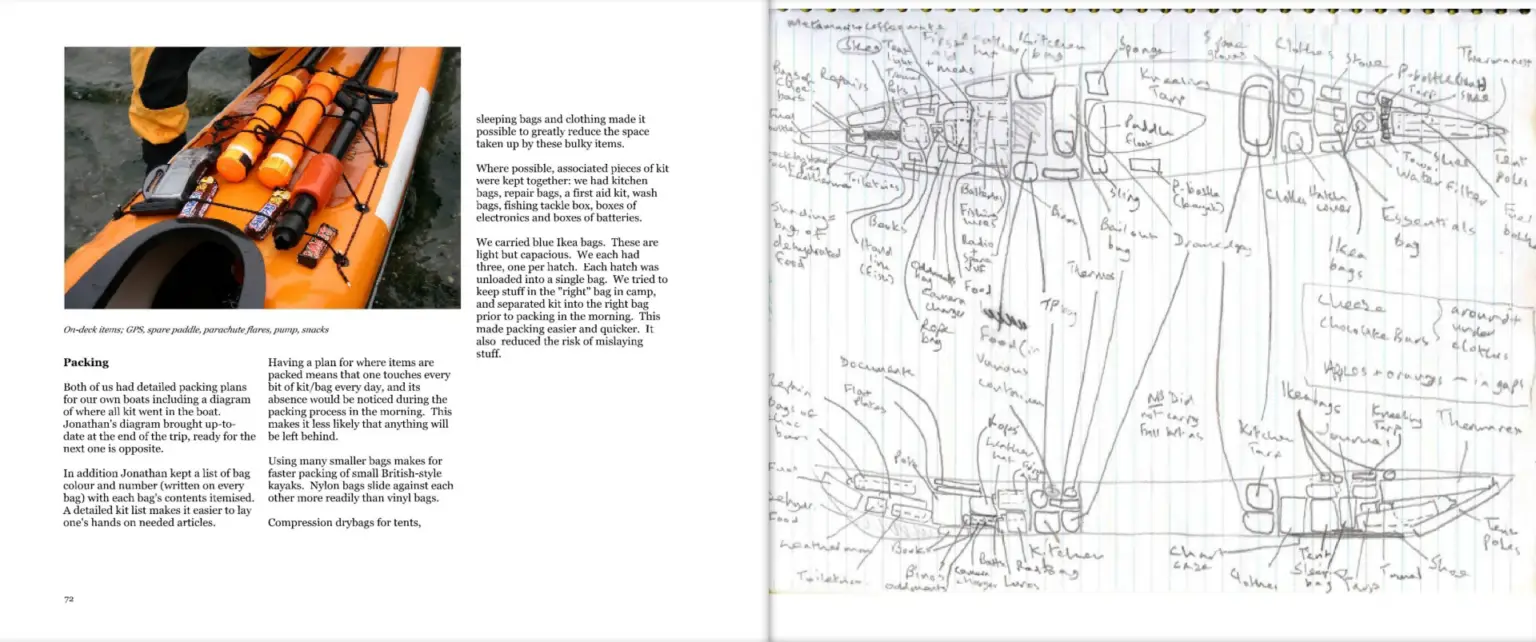 On-deck items; GPS, spare paddle, parachute flares, pump, snacks
Packing
Both of us had detailed packing plans
for our own boats including a diagram
of where all kit went in the boat.
Jonathan's diagram brought up-to-
date at the end of the trip, ready for the
next one is opposite.
In addition Jonathan kept a list of bag
colour and number (written on every
bag) with each bag's contents itemised.
A detailed kit list makes it easier to lay
one's hands on needed articles.
Having a plan for where items are
packed means that one touches every
bit of kit/bag every day, and its
absence would be noticed during the
packing process in the morning. This
makes it less likely that anything will
be left behind.
Using many smaller bags makes for
faster packing of small British-style
kayaks. Nylon bags slide against each
other more readily than vinyl bags.
Compression drybags for tents,
sleeping bags and clothing made it
possible to greatly reduce the space
taken up by these bulky items.
Where possible, associated pieces of kit
were kept together: we had kitchen
bags, repair bags, a first aid kit, wash
bags, fishing tackle box, boxes of
electronics and boxes of batteries.
We carried blue Ikea bags. These are
light but capacious. We each had
three, one per hatch. Each hatch was
unloaded into a single bag. We tried to
keep stuff in the "right" bag in camp,
and separated kit into the right bag
prior to packing in the morning. This
made packing easier and quicker. It
also reduced the risk of mislaying
stuff.
72
Kitchen
bag
Sponge
Spare
gloves
Clothes
Stove
Thermarest
Repairs
Kneeling
Tarp
Tarp
Paddle
float
Toiletries
Books
Batteries
Fishing
Radio
+ spare
Food
Sling
Bail out
bag
Thermos
Clothes
Hatch
cover
Towel
Water filter
Essentials
bag
Ikea
bags
Tent
poles
Fuel
bottle
bag of
dehydrated
food
Hand
line
(Fish)
camera
charger
Rope
bag
TP bag
Food (in
various
Cheese
Chocolate Bars
around +
under
clothes
Apples + oranges - in gaps
Documents
Float
Ropes
NB Did
not carry
Kitchen
Tarp
Ikea bags
Journal
Kneeling
Tarp
Thermarest
Fuel
Food
Toiletries
Books
Binos
camera
charger
Batts
Lures
Kitchen
Chart
case
Clothes
Tent
Sleeping
bag
Tarp
Towel
Shoe
Tent
poles